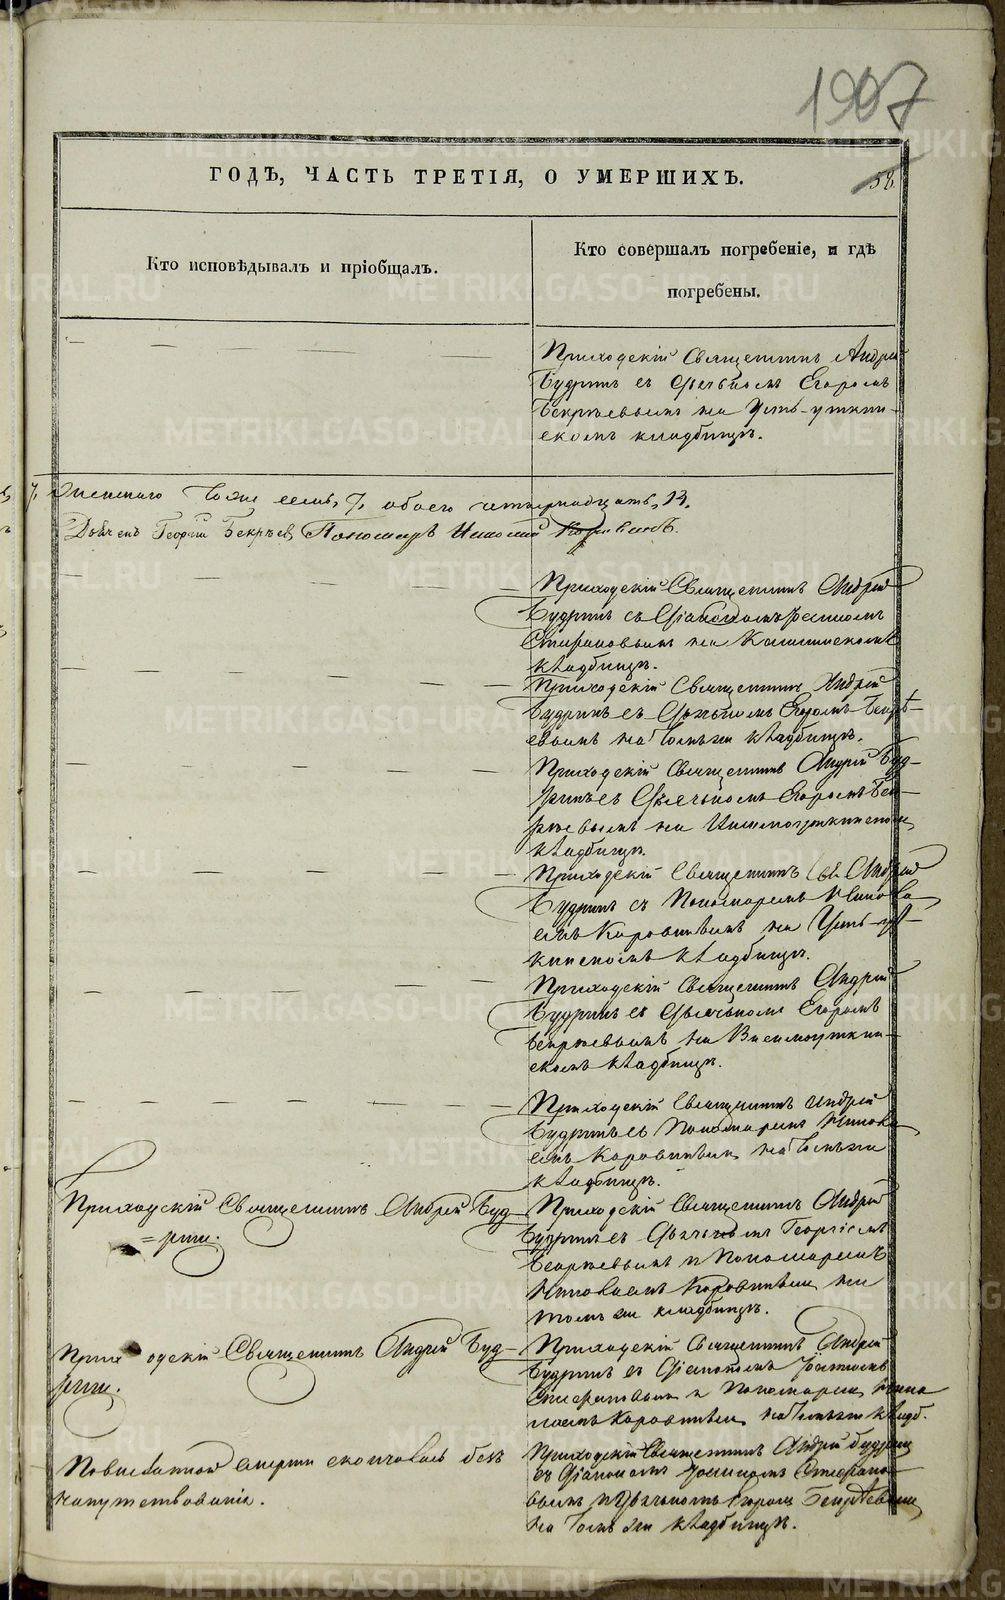 1907
58
ГОДЪ, ЧАСТЬ ТРЕТІЯ, О УМЕРШИХЪ.
Кто исповѣдывалъ и пріобщалъ.
Кто совершалъ погребеніе, и гдѣ
погребены.
Приходскій Священникъ Андрей
Будринъ съ Дьячкомъ Егоромъ
Бекрѣевымъ на Усть-уткин-
скомъ кладбищѣ.
женскаго тоже семь, 7, обоего четырнадцать,
Дьячекъ Георгій Бекрѣевъ Пономарь Николай Коровинъ.
Приходскій Священникъ Андрей
Будринъ съ Діакономъ
Стефановымъ на
кладбищѣ.
Приходскій Священникъ Андрей
Будринъ съ Дьячкомъ Егоромъ Бекрѣ-
евымъ на томъ же кладбищѣ.
Приходскій Священникъ Андрей Буд-
ринъ съ Дьячкомъ Егоромъ Бек-
рѣевымъ на
кладбищѣ.
Приходскій Священникъ Андрей
Будринъ съ Пономаремъ Никола-
емъ Коровинымъ на Усть-ут-
кинскомъ кладбищѣ.
Приходскій Священникъ Андрей
Будринъ съ Дьячкомъ Егоромъ
Бекрѣевымъ на Висимоуткин-
скомъ кладбищѣ.
Приходскій Священникъ Андрей
Будринъ съ Пономаремъ Никола-
емъ Коровинымъ на томъ же
кладбищѣ.
Приходскій Священникъ Андрей Буд-
=ринъ.
Приходскій Священникъ Андрей
Будринъ съ Дьячкомъ Георгіемъ
Бекрѣевымъ и Пономаремъ
Николаемъ Коровинымъ на
томъ же кладбищѣ.
Приходскій Священникъ Андрей Буд-
ринъ.
Приходскій Священникъ Андрей
Будринъ съ Діакономъ
Стефановымъ и Пономаремъ Нико-
лаемъ Коровинымъ на томъ же кладб.
смерти скончался безъ
напутствованія.
Приходскій Священникъ Андрей Будринъ
съ Діакономъ Стефано-
вымъ и Дьячкомъ Егоромъ Бекрѣевымъ
на томъ же кладбищѣ.
METRIKI.GASO-URAL.RU